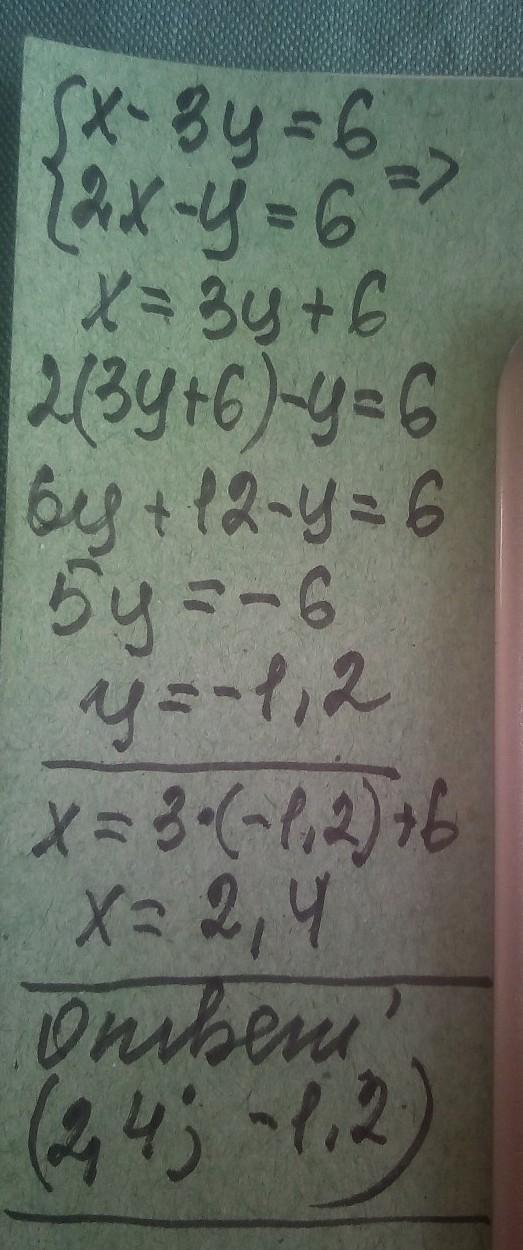 { x - 3y = 6
2x - y = 6 =>
x = 3y + 6
2(3y+6) - y = 6
6y + 12 - y = 6
5y = -6
y = -1,2
x = 3·(-1,2) + 6
x = 2,4
Ответ:
(2,4; -1,2)